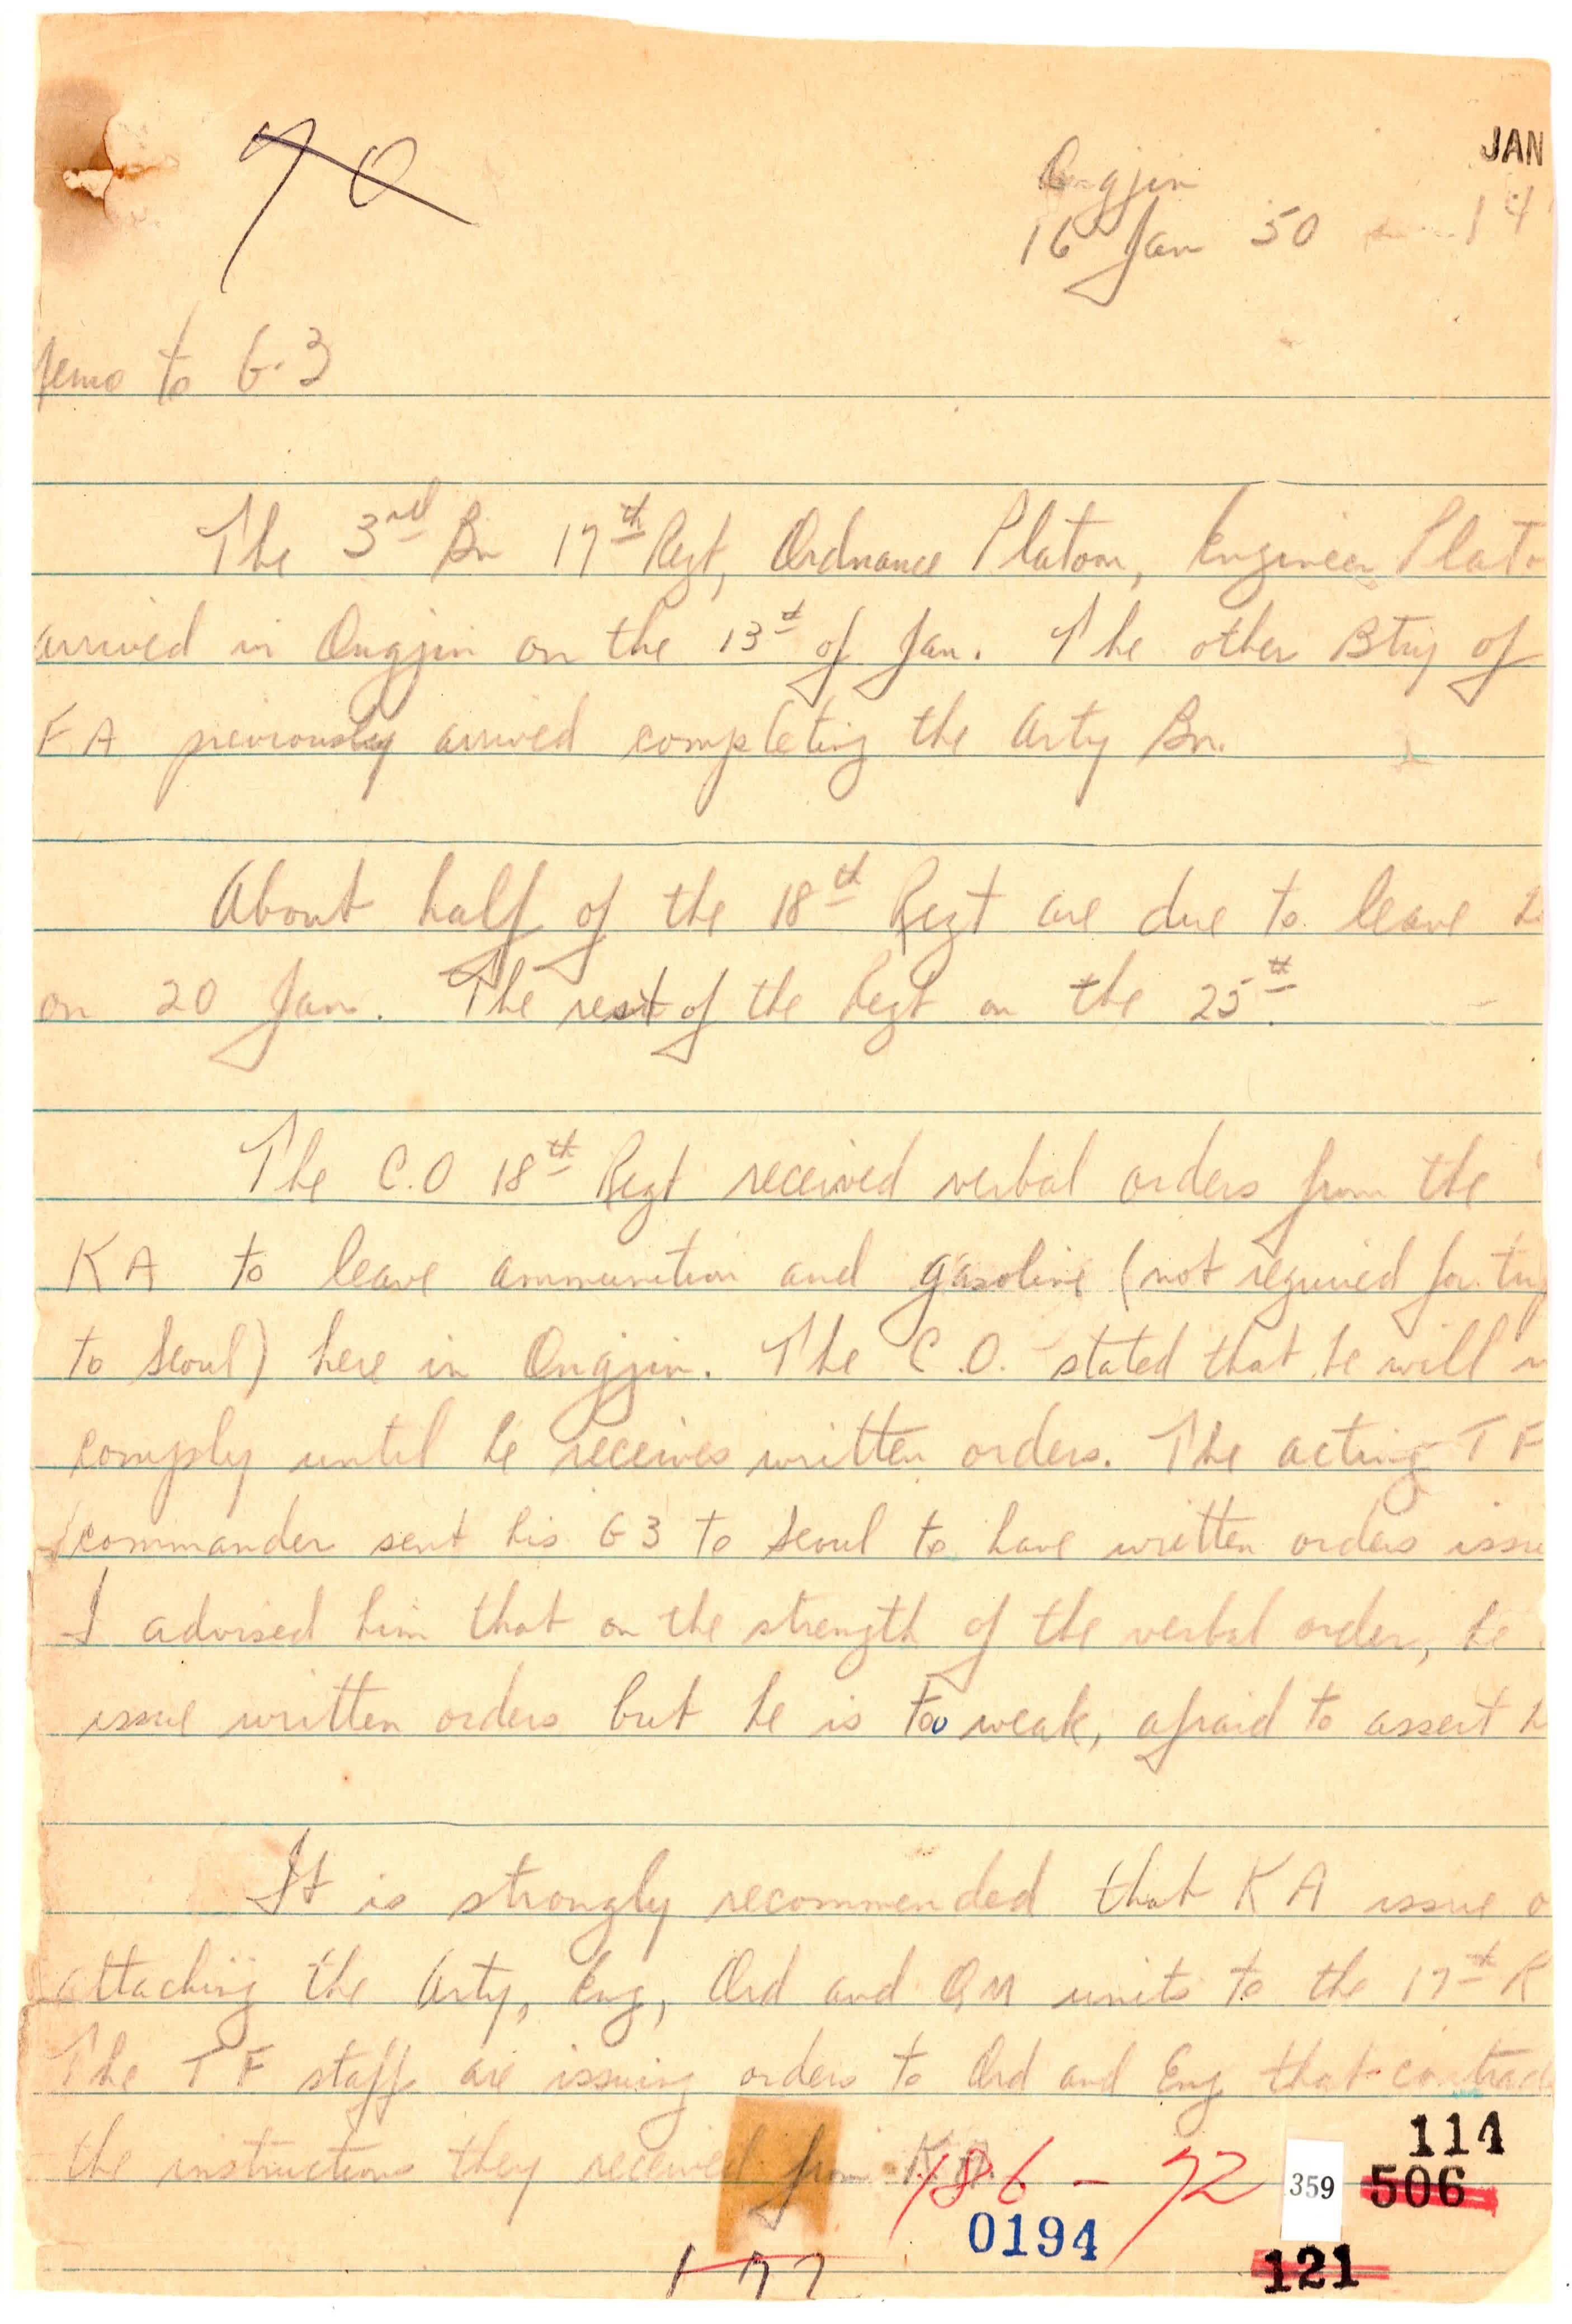 70
JAN
Ongjin
14
16 Jan 50
Memo to G-3
The 3rd Bn 17th Regt, Ordnance Platoon, Engineer Plato
arrived in Ongjin on the 13th of Jan. The other Btry of
FA previously arrived completing the Arty Bn.
About half of the 18th Regt are due to leave
on 20 Jan. The rest of the Regt on the 25th.
The C.O 18th Regt received verbal orders from the
KA to leave ammunition and gasoline (not required for trip
to Seoul) here in Ongjin. The C.O. stated that he will n
comply until he receives written orders. The acting TF
commander sent his G3 to Seoul to have written orders issu
I advised him that on the strength of the verbal order, he
issue written orders but he is too weak, afraid to assert h
It is strongly recommended that KA issue o
attaching the Arty, Eng, Ord and QM units to the 17th R
The TF staff are issuing orders to Ord and Eng that contrad
the instructions they received from KA.
186-72
359
114
506
0194
121
177